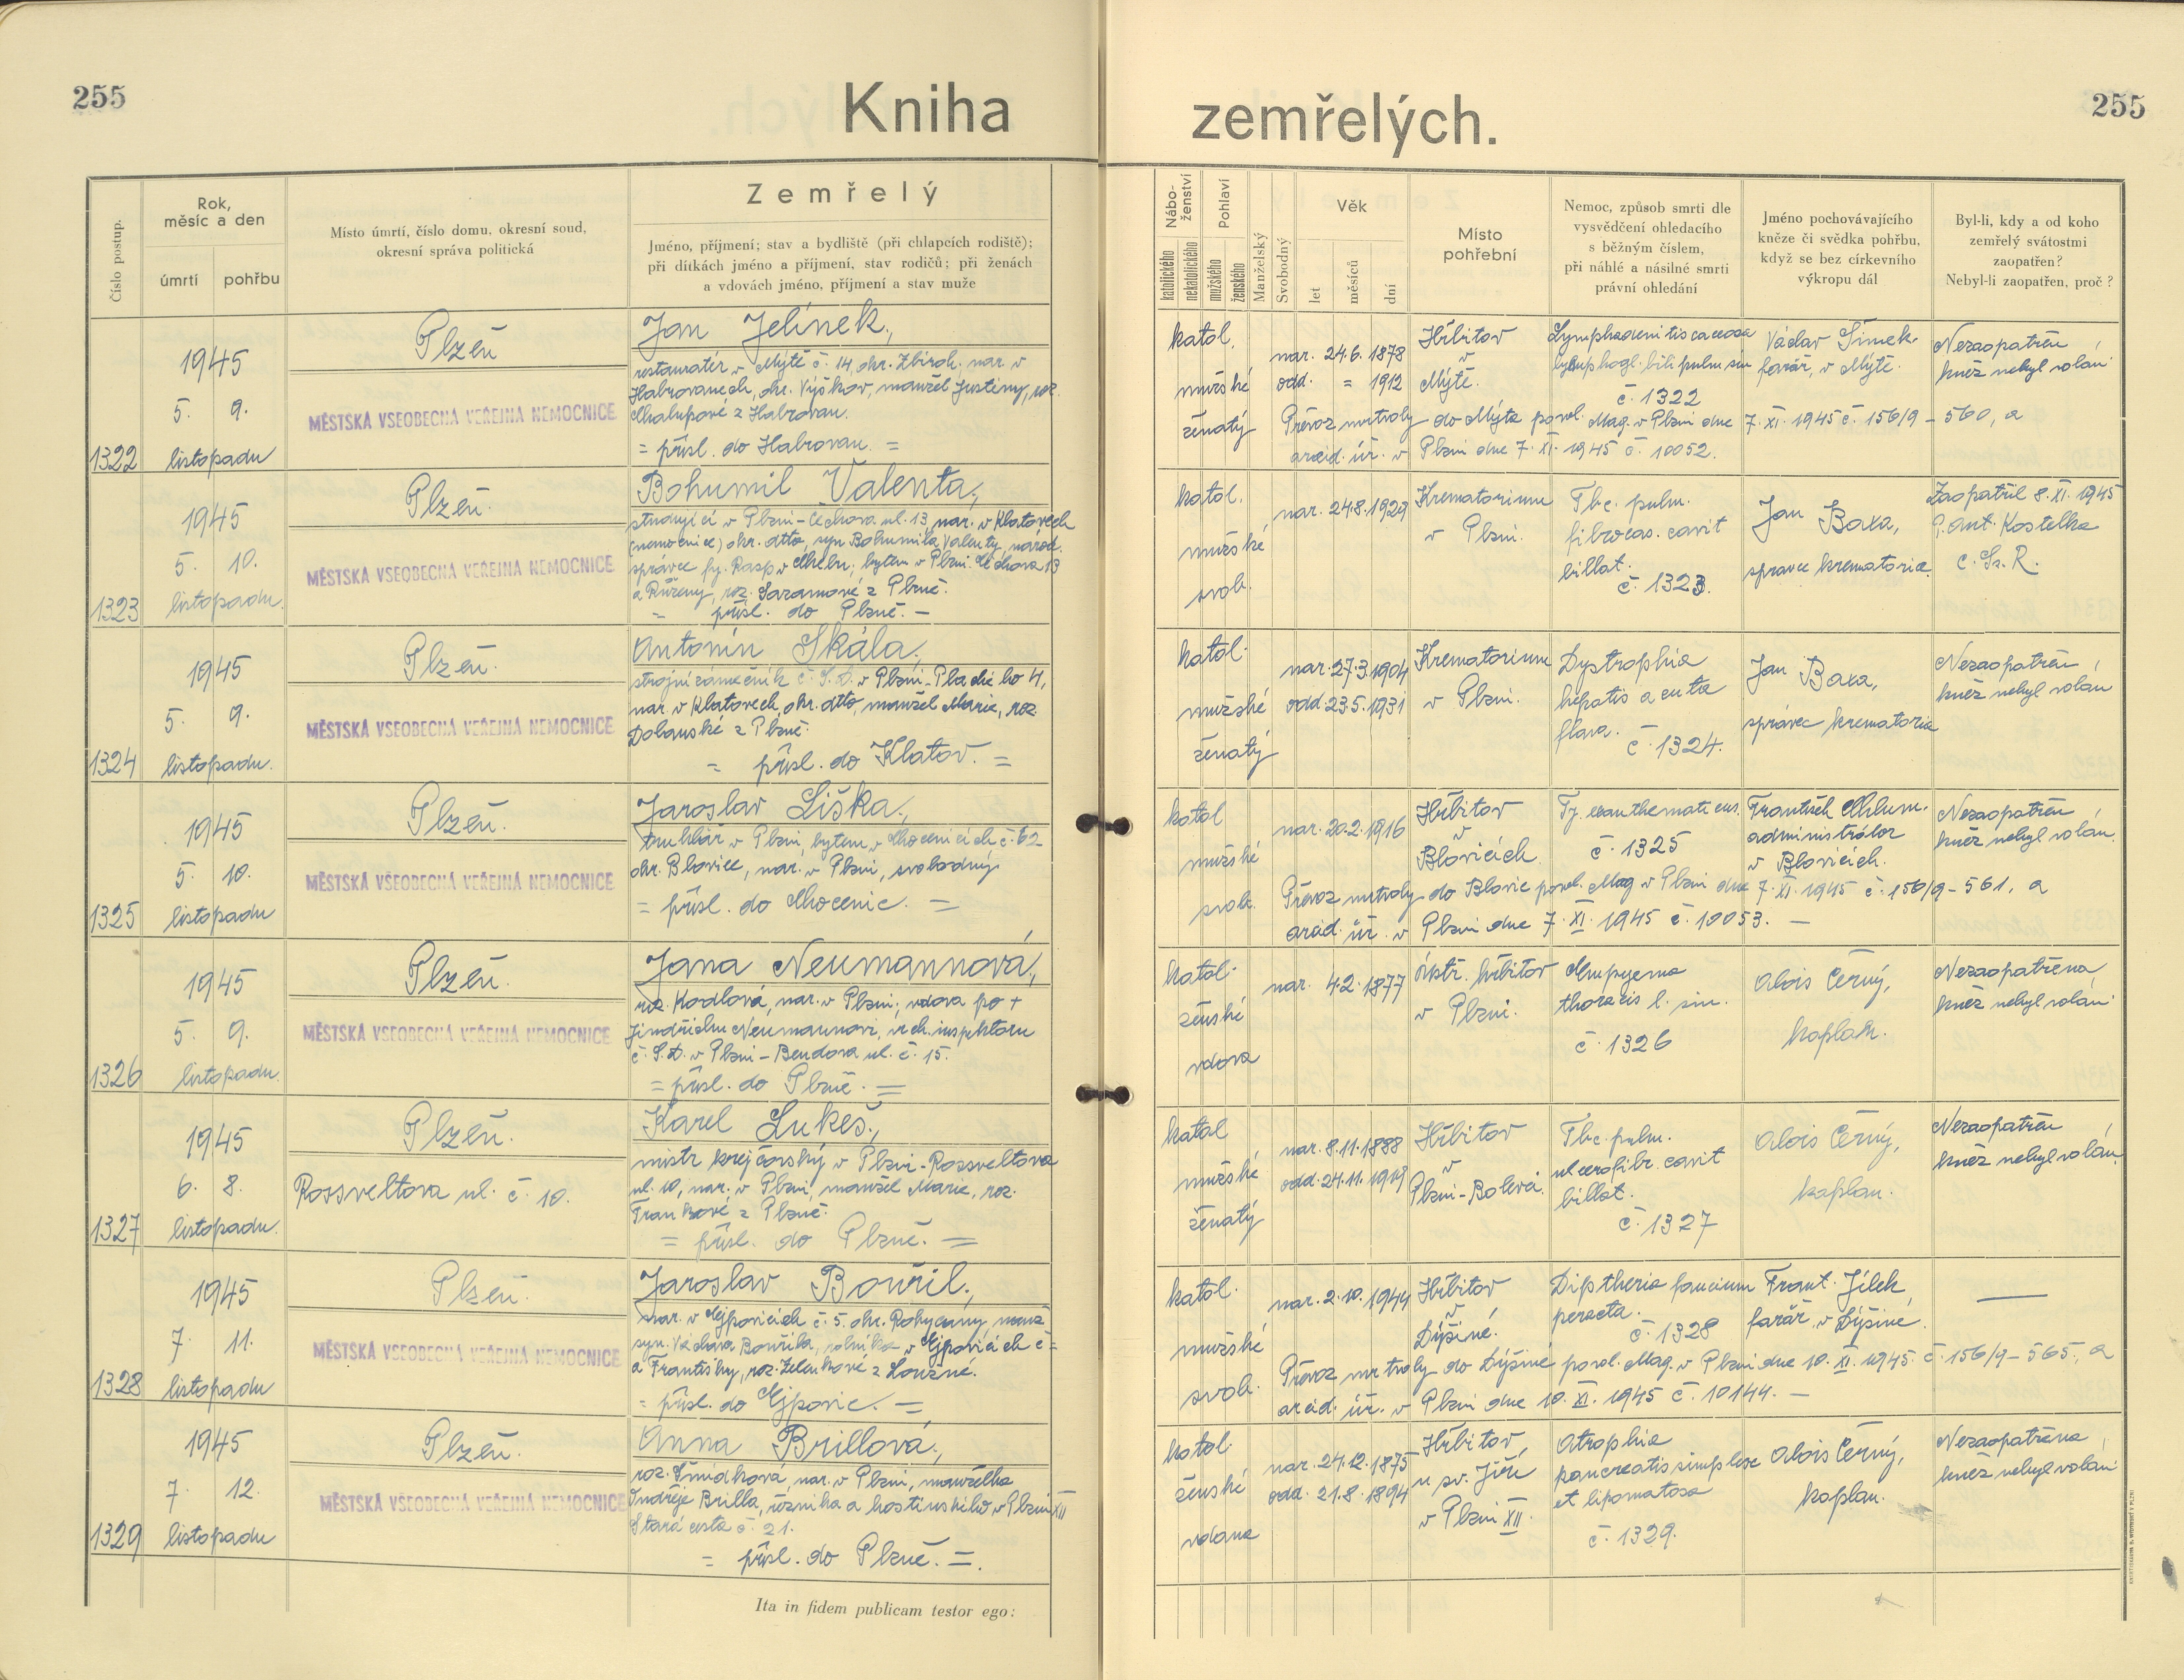 255
Kniha
zemřelých.
255
Číslo postup.
Rok,
měsíc a den
úmrtí
pohřbu
Místo úmrtí, číslo domu, okresní soud,
okresní správa politická
Zemřelý
Jméno, příjmení; stav a bydliště (při chlapcích rodiště);
při dítkách jméno a příjmení, stav rodičů; při ženách
a vdovách jméno, příjmení a stav muže
Nábo-
ženství
katolického
nekatolického
Pohlaví
mužského
ženského
Manželský
Svobodný
Věk
let
měsíců
dní
Místo
pohřební
Nemoc, způsob smrti dle
vysvědčení ohledacího
s běžným číslem,
při náhlé a násilné smrti
právní ohledání
Jméno pochovávajícího
kněze či svědka pohřbu,
když se bez církevního
výkropu dál
Byl-li, kdy a od koho
zemřelý svátostmi
zaopatřen?
Nebyl-li zaopatřen, proč?
1322
1945
5. 9.
listopadu
Plzeň
MĚSTSKÁ VŠEOBECNÁ VEŘEJNÁ NEMOCNICE
Jan Jelínek,
restauratér v Mýtě č. 14, okr. Zbiroh, nar. v
Habrovanech, okr. Vyškov, manžel Justiny, roz.
Chalupové z Habrovan.
= přísl. do Habrovan. =
katol.
mužské
ženatý
nar. 24.6. 1878
odd. = 1912
Hřbitov
v
Mýtě.
Lymphadenitis caseosa
lymphogl. bili pulm. sin
č. 1322
Václav Šimek.
farář, v Mýtě.
Nezaopatřen
kněz nebyl volán
Převoz mrtvoly do Mýta povol. Mag. v Plzni dne 7. XI. 1945 č. 156/9 – 560, a
arcid. úř. v Plzni dne 7. XI. 1945 č. 10052.
1323
1945
5. 10.
listopadu.
Plzeň.
MĚSTSKÁ VŠEOBECNÁ VEŘEJNÁ NEMOCNICE
Bohumil Valenta,
studující v Plzni-Čechova ul. 13, nar. v Klatovech
(nemocnice) okr. dtto, syn Bohumila Valenty, národ.
správce fy. Rasp v Chebu, bytem v Plzni Čechova 13
a Růženy, roz. Saramové z Plzně.
= přísl. do Plzně. –
katol.
mužské
svob.
nar. 24.8. 1929
Krematorium
v Plzni.
Tbc. pulm.
fibrocas. cavit
billat.
č. 1323.
Jan Baxa,
správce krematoria.
Zaopatřil 8. XI. 1945
P. Ant. Kostelka
C. Ss. R.
1324
1945
5. 9.
listopadu.
Plzeň.
MĚSTSKÁ VŠEOBECNÁ VEŘEJNÁ NEMOCNICE
Antonín Skála,
strojní zámečník č. S. D. v Plzni-Plachého 4,
nar. v Klatovech, okr. dtto, manžel Marie, roz.
Dolanské z Plzně.
= přísl. do Klatov. =
katol.
mužské
ženatý
nar. 27.3. 1904
odd. 23.5. 1931
Krematorium
v Plzni.
Dystrophia
hepatis acuta
flava.
č. 1324.
Jan Baxa,
správce krematoria
Nezaopatřen,
kněz nebyl volán
1325
1945
5. 10.
listopadu
Plzeň.
MĚSTSKÁ VŠEOBECNÁ VEŘEJNÁ NEMOCNICE
Jaroslav Liška,
truhlář v Plzni, bytem v Chocenicích č. 62
okr. Blovice, nar. v Plzni, svobodný
= přísl. do Chocenic. =
katol
mužské
svob.
nar. 20.2. 1916
Hřbitov
v
Blovicích.
Ty. exanthematicus.
č. 1325
František Chlum.
administrátor
v Blovicích.
Nezaopatřen
kněz nebyl volán.
Převoz mrtvoly do Blovic povol. Mag. v Plzni dne 7. XI. 1945 č. 156/9 – 561, a
arcid. úř. v Plzni dne 7. XI. 1945 č. 10053. –
1326
1945
5. 9.
listopadu.
Plzeň.
MĚSTSKÁ VŠEOBECNÁ VEŘEJNÁ NEMOCNICE
Jana Neumannová,
roz. Kodlová, nar. v Plzni, vdova po +
Jindřichu Neumannovi, vrch. inspektoru
č. S. D. v Plzni – Bendova ul. č. 15.
= přísl. do Plzně. =
katol.
ženské
vdova
nar. 4.2. 1877
Ústř. hřbitov
v Plzni.
Empyema
thoracis l. sin.
č. 1326
Alois Černý,
kaplan.
Nezaopatřena
kněz nebyl volán.
1327
1945
6. 8.
listopadu.
Plzeň.
Rossveltova ul. č. 10.
Karel Lukeš,
mistr krejčovský v Plzni-Rossveltova
ul. 10, nar. v Plzni, manžel Marie, roz.
Frankové z Plzně.
= přísl. do Plzně. =
katol
mužské
ženatý
nar. 8.11. 1888
odd. 24.11. 1919
Hřbitov
v
Plzni-Bolevci.
Tbc. pulm.
ulcerofibr. cavit
billat.
č. 1327
Alois Černý,
kaplan.
Nezaopatřen
kněz nebyl volán.
1328
1945
7. 11.
listopadu
Plzeň.
MĚSTSKÁ VŠEOBECNÁ VEŘEJNÁ NEMOCNICE
Jaroslav Bouřil,
nar. v Ejpovicích č. 5. okr. Rokycany, manž.
syn. Václava Bouřila, rolníka v Ejpovicích č =
a Františky, roz. Zelenkové z Loužné.
= přísl. do Ejpovic. =
katol.
mužské
svob.
nar. 2. 10. 1944
Hřbitov
v
Dýšiné.
Diptheria faucium
peracta.
č. 1328
Frant. Jílek,
farář v Dýšiné.
—
Převoz mrtvoly do Dýšiné povol. Mag. v Plzni dne 10. XI. 1945. č. 156/9 – 565, a
arcid. úř. v Plzni dne 10. XI. 1945 č. 10144. –
1329
1945
7. 12.
listopadu
Plzeň.
MĚSTSKÁ VŠEOBECNÁ VEŘEJNÁ NEMOCNICE
Anna Brillová,
roz. Šmídková, nar. v Plzni, manželka
Ondřeje Brilla, řezníka a hostinského v Plzni XII
Stará cesta č. 21.
= přísl. do Plzně. =.
katol.
ženské
vdana
nar. 24.12. 1875
odd. 21.8. 1894
Hřbitov,
u sv. Jiří
v Plzni XII.
Atrophia
pancreatis simplex
et lipomatosa
č. 1329.
Alois Černý,
kaplan.
Nezaopatřena,
kněz nebyl volán
Ita in fidem publicam testor ego: